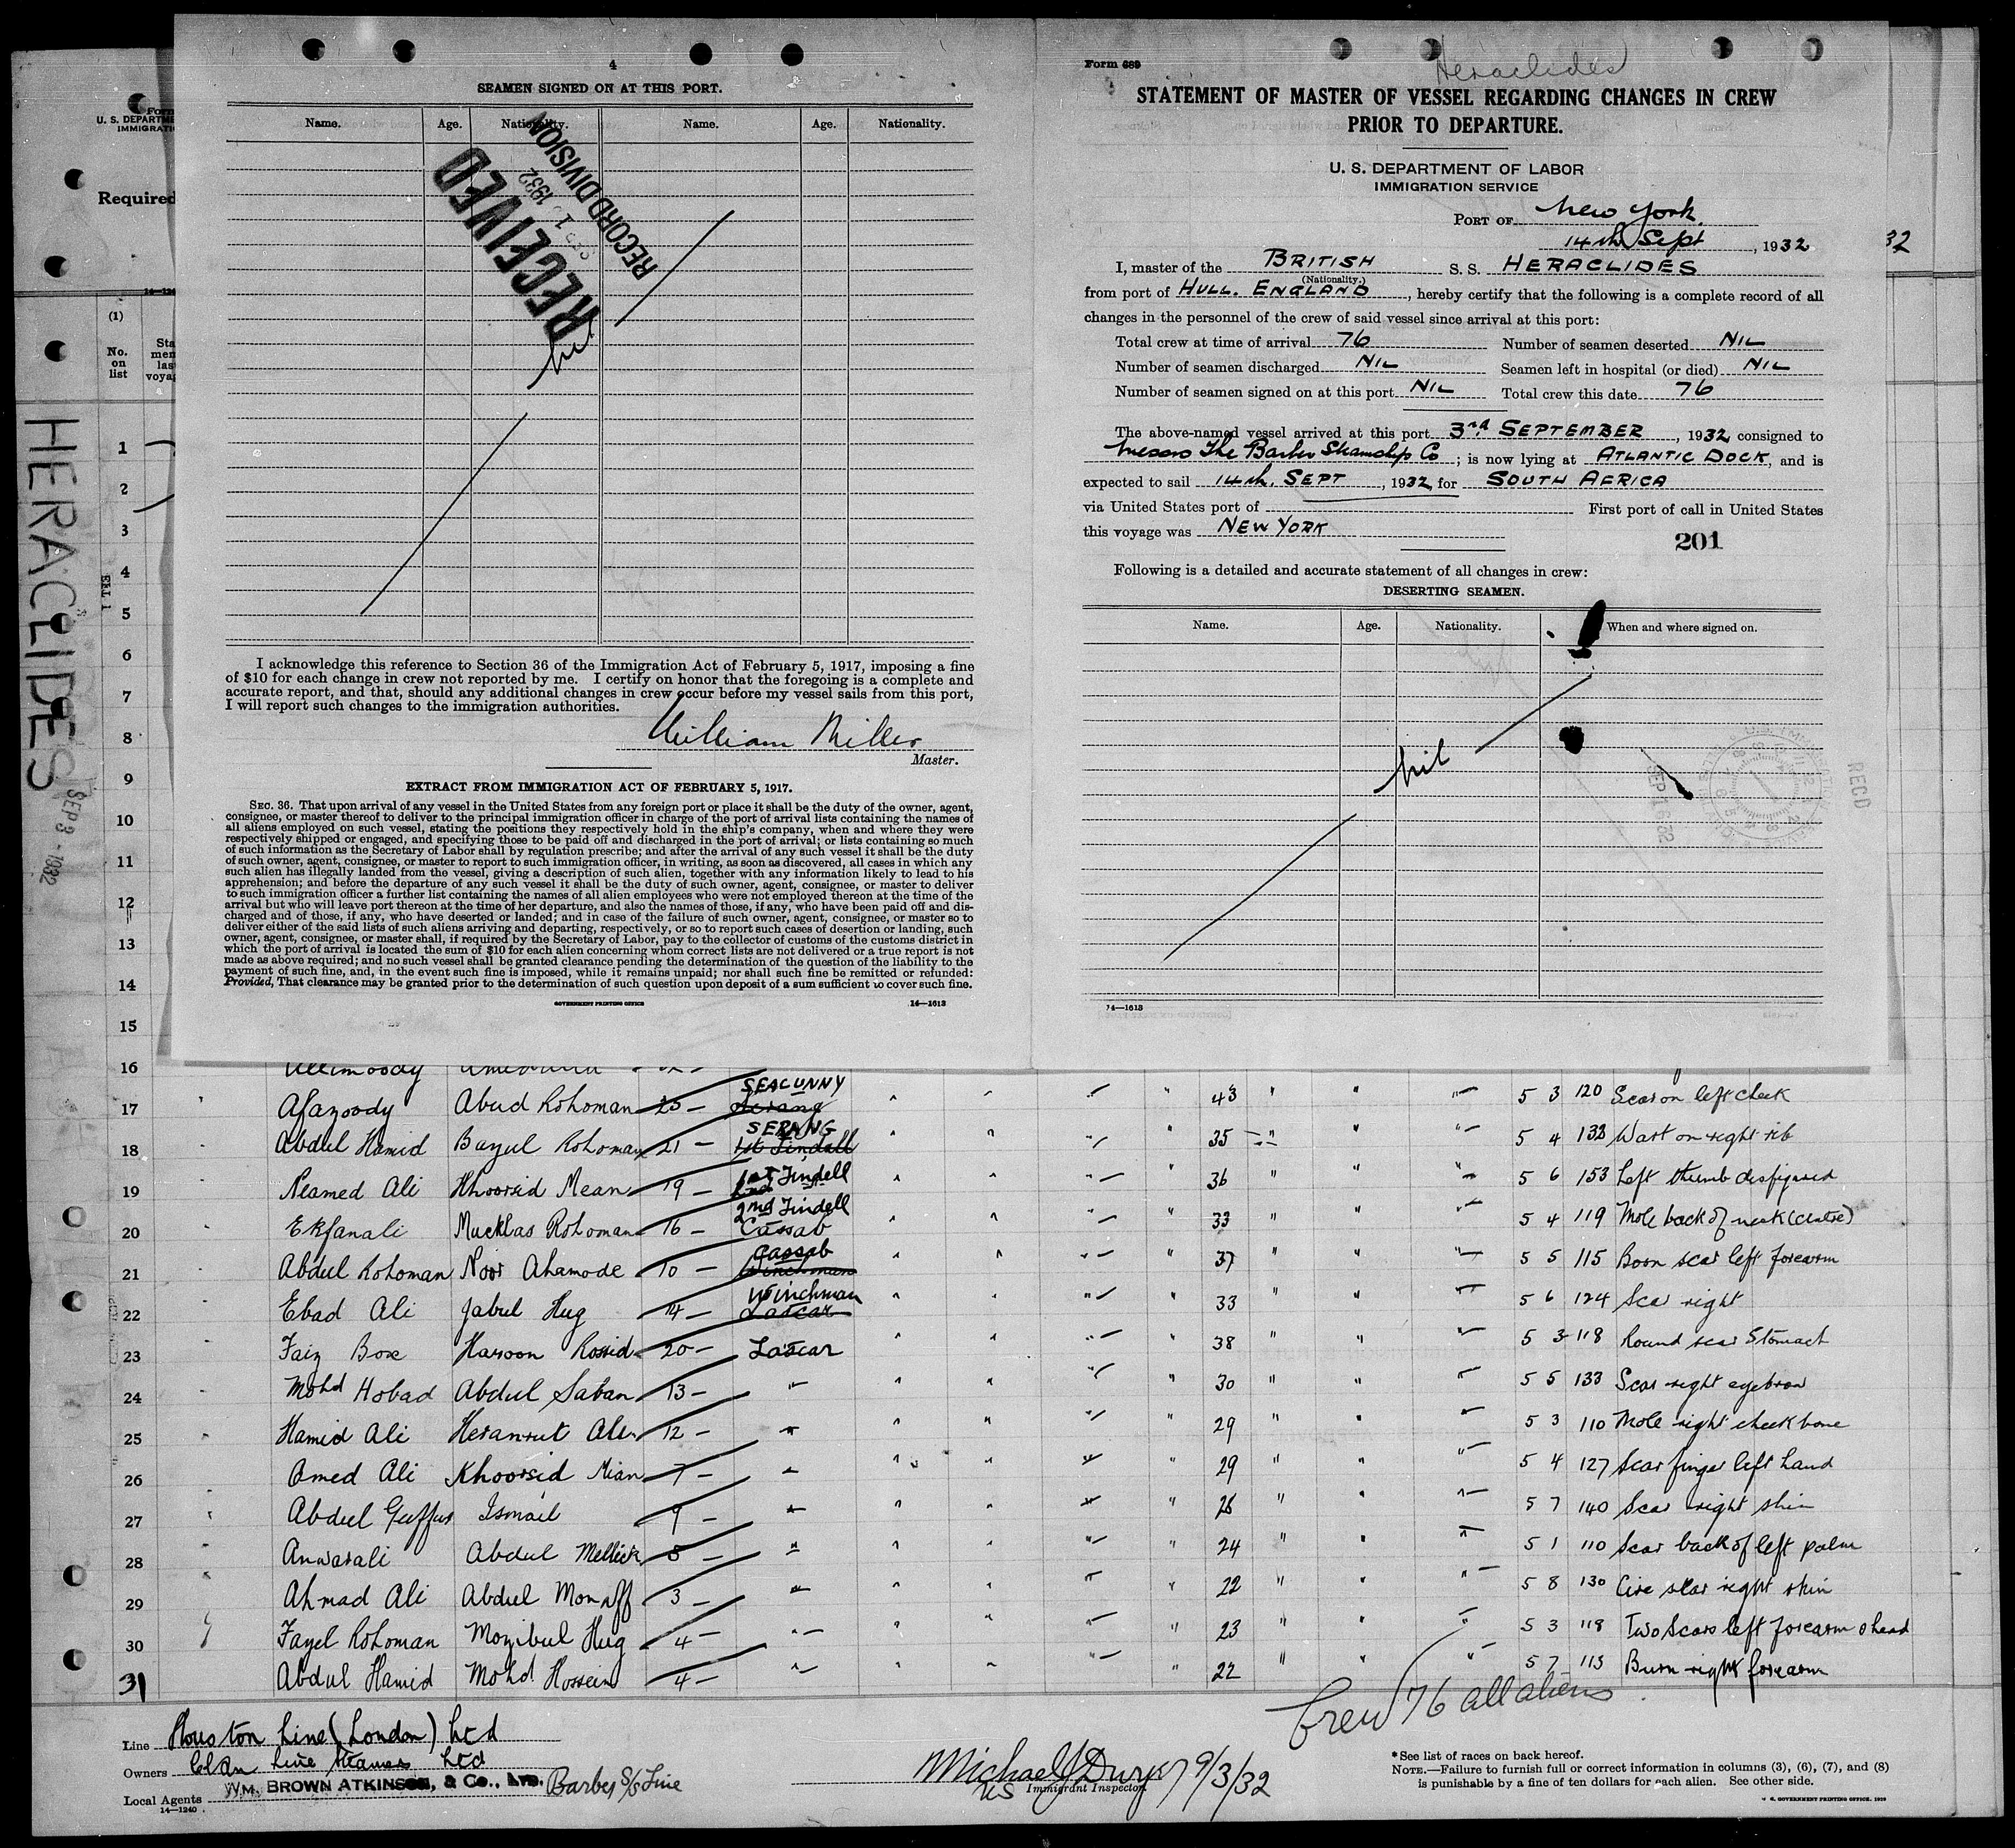 4
SEAMEN SIGNED ON AT THIS PORT.
Name. Age. Nationality. Name. Age. Nationality.
RECEIVED
1932
RECORD DIVISION
nil
I acknowledge this reference to Section 36 of the Immigration Act of February 5, 1917, imposing a fine
of $10 for each change in crew not reported by me. I certify on honor that the foregoing is a complete and
accurate report, and that, should any additional changes in crew occur before my vessel sails from this port,
I will report such changes to the immigration authorities.
William Miller
Master.
EXTRACT FROM IMMIGRATION ACT OF FEBRUARY 5, 1917.
SEC. 36. That upon arrival of any vessel in the United States from any foreign port or place it shall be the duty of the owner, agent,
consignee, or master thereof to deliver to the principal immigration officer in charge of the port of arrival lists containing the names of
all aliens employed on such vessel, stating the positions they respectively hold in the ship's company, when and where they were
respectively shipped or engaged, and specifying those to be paid off and discharged in the port of arrival; or lists containing so much
of such information as the Secretary of Labor shall by regulation prescribe; and after the arrival of any such vessel it shall be the duty
of such owner, agent, consignee, or master to report to such immigration officer, in writing, as soon as discovered, all cases in which any
such alien has illegally landed from the vessel, giving a description of such alien, together with any information likely to lead to his
apprehension; and before the departure of any such vessel it shall be the duty of such owner, agent, consignee, or master to deliver
to such immigration officer a further list containing the names of all alien employees who were not employed thereon at the time of the
arrival but who will leave port thereon at the time of her departure, and also the names of those, if any, who have been paid off and dis-
charged and of those, if any, who have deserted or landed; and in case of the failure of such owner, agent, consignee, or master so to
deliver either of the said lists of such aliens arriving and departing, respectively, or so to report such cases of desertion or landing, such
owner, agent, consignee, or master shall, if required by the Secretary of Labor, pay to the collector of customs of the customs district in
which the port of arrival is located the sum of $10 for each alien concerning whom correct lists are not delivered or a true report is not
made as above required; and no such vessel shall be granted clearance pending the determination of the question of the liability to the
payment of such fine, and, in the event such fine is imposed, while it remains unpaid; nor shall such fine be remitted or refunded:
Provided, That clearance may be granted prior to the determination of such question upon deposit of a sum sufficient to cover such fine.
GOVERNMENT PRINTING OFFICE 14—1613
Form 689
Heraclides
STATEMENT OF MASTER OF VESSEL REGARDING CHANGES IN CREW
PRIOR TO DEPARTURE.
U. S. DEPARTMENT OF LABOR
IMMIGRATION SERVICE
PORT OF New York.
14th Sept, 1932
I, master of the BRITISH S. S. HERACLIDES
(Nationality.)
from port of HULL. ENGLAND, hereby certify that the following is a complete record of all
changes in the personnel of the crew of said vessel since arrival at this port:
Total crew at time of arrival 76 Number of seamen deserted NIL
Number of seamen discharged NIL Seamen left in hospital (or died) NIL
Number of seamen signed on at this port NIL Total crew this date 76
The above-named vessel arrived at this port 3rd SEPTEMBER, 1932, consigned to
Messrs The Barber Steamship Co; is now lying at ATLANTIC DOCK, and is
expected to sail 14th. SEPT, 1932, for SOUTH AFRICA
via United States port of First port of call in United States
this voyage was NEW YORK
201
Following is a detailed and accurate statement of all changes in crew:
DESERTING SEAMEN.
Name. Age. Nationality. When and where signed on.
nil
SEP 16 32
REC'D
14—1613
Form
U. S. DEPARTME
IMMIGRATI
Required
32
(1)
No. on list
HERACLIDES
SEP 3 - 1932
1
2
3
4
5
6
7
8
9
10
11
12
13
14
15
16
17 Afazoody Abud Rohoman 25 — SEACUNNY Serang 43 " 5 3 120 Scar on left cheek
18 Abdul Hamid Bazul Rohoman 21 — SERANG 1st Tindall 35 " 5 4 133 Wart on right rib
19 Neamed Ali Khoorsid Mean 19 — 1st Tindell 2nd 36 " 5 6 153 Left thumb disfigured
20 Ekfanali Mucklas Rohoman 16 — 2nd Tindell Cassab 33 " 5 4 119 Mole back of neck (centre)
21 Abdul Rohoman Noor Ahamode 10 — Cassab Winchman 37 " 5 5 115 Boon scar left forearm
22 Ebad Ali Jabul Hug 14 — Winchman Lascar 33 " 5 6 124 Scar right
23 Faiz Box Haroon Rossid 20 — Lascar 38 " 5 3 118 Round scar Stomach
24 Mohd Hobad Abdul Saban 13 — " 30 " 5 5 133 Scar right eyebrow
25 Hamid Ali Heranrut Ali 12 — " 29 " 5 3 110 Mole right cheek bone
26 Amed Ali Khoorsid Mian 7 — " 29 " 5 4 127 Scar finger left hand
27 Abdul Guffur Ismail 9 — " 26 " 5 7 140 Scar right shin
28 Anwarali Abdul Mellick 5 — " 24 " 5 1 110 Scar back of left palm
29 Ahmad Ali Abdul Monaff 3 — " 22 " 5 8 130 Circ scar right shin
30 Fayel Rohoman Mozibul Hug 4 — " 23 " 5 3 118 Two Scars left forearm & head
31 Abdul Hamid Mohd Hossein 4 — " 22 " 5 7 113 Burn right forearm
Crew 76 all aliens
Line Houston Line (London) Ltd
Owners Clan Line Steamers Ltd
Local Agents WM. BROWN ATKINSON, & Co., LTD. Barber S/S Line
14—1240
Michael J Dwyer 9/3/32
US Immigrant Inspector.
*See list of races on back hereof.
NOTE.—Failure to furnish full or correct information in columns (3), (6), (7), and (8)
is punishable by a fine of ten dollars for each alien. See other side.
U. S. GOVERNMENT PRINTING OFFICE. 1929